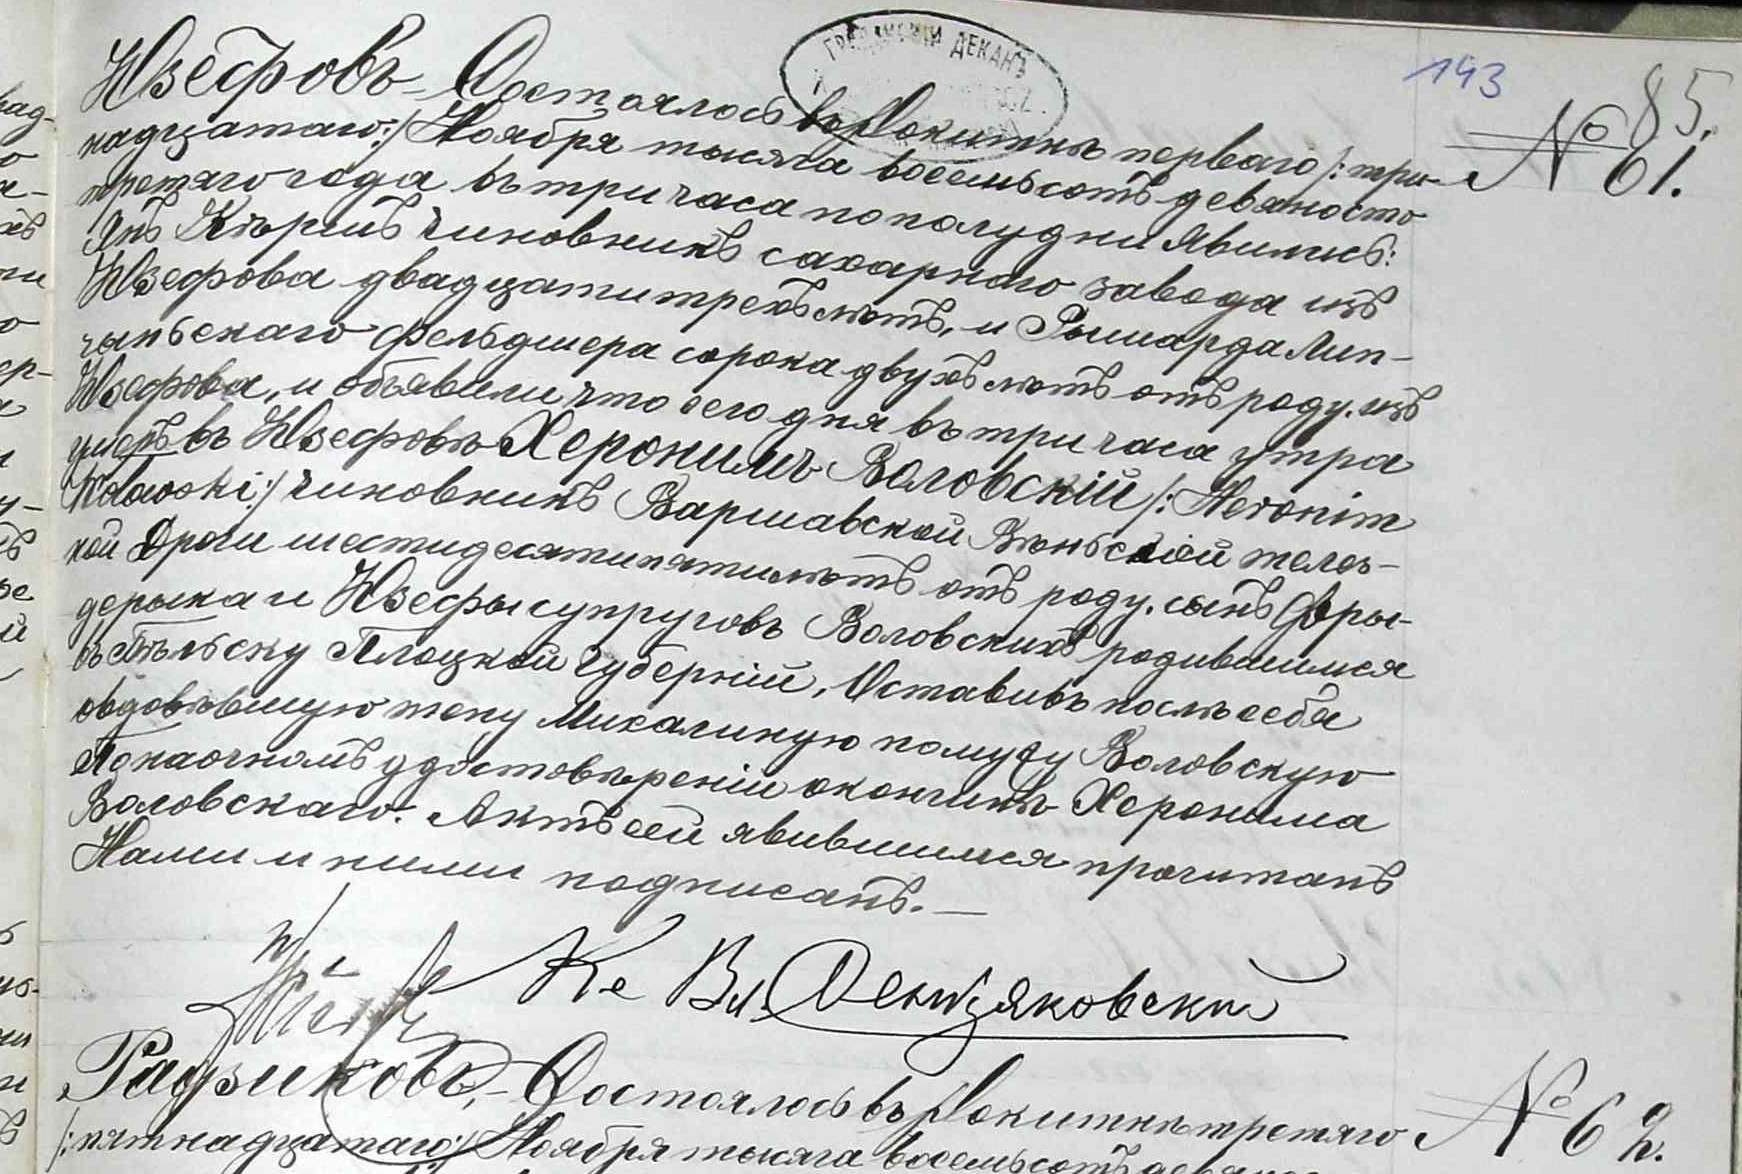 ГРАЖДАНСКІЙ ДЕКАНЪ
193
85.
Юзефовъ. Состоялось въ Рокитнѣ перваго /: три-
надцатаго:/ Ноября тысяча восемьсотъ девяносто
№ 61.
третяго года въ три часа пополудни Явились:
Янъ чиновникъ сахарного завода изъ
Юзефова двадцати трехъ лѣтъ, и Рышарда Лип-
чинскаго фельдшера сорока двухъ лѣтъ отъ роду, изъ
Юзефова, и объявили что сего дня въ три часа утра
умеръ въ Юзефовѣ Херонимъ Воловскій /: Heronim
Wołowski:/ чиновникъ Варшавской Вѣньской желез-
ной Дроги шестидесяти пяти лѣтъ отъ роду, сынъ Фры-
дерыка и Юзефы супруговъ Воловскихъ родившимся
въ Бѣльску Плоцкой Губерній, Оставивъ послѣ себя
овдовѣвшую жену Михалиную Воловскую
По наочномъ удостовѣреніи окончинѣ Херонима
Воловскаго. Актъ сей явившимся прочитанъ
Нами и ними подписанъ. —
Кс Вл.
Радзиковъ. Состоялось въ Рокитнѣ третяго
№ 62.
/: пятнадцатаго:/ Ноября тысяча восемьсотъ